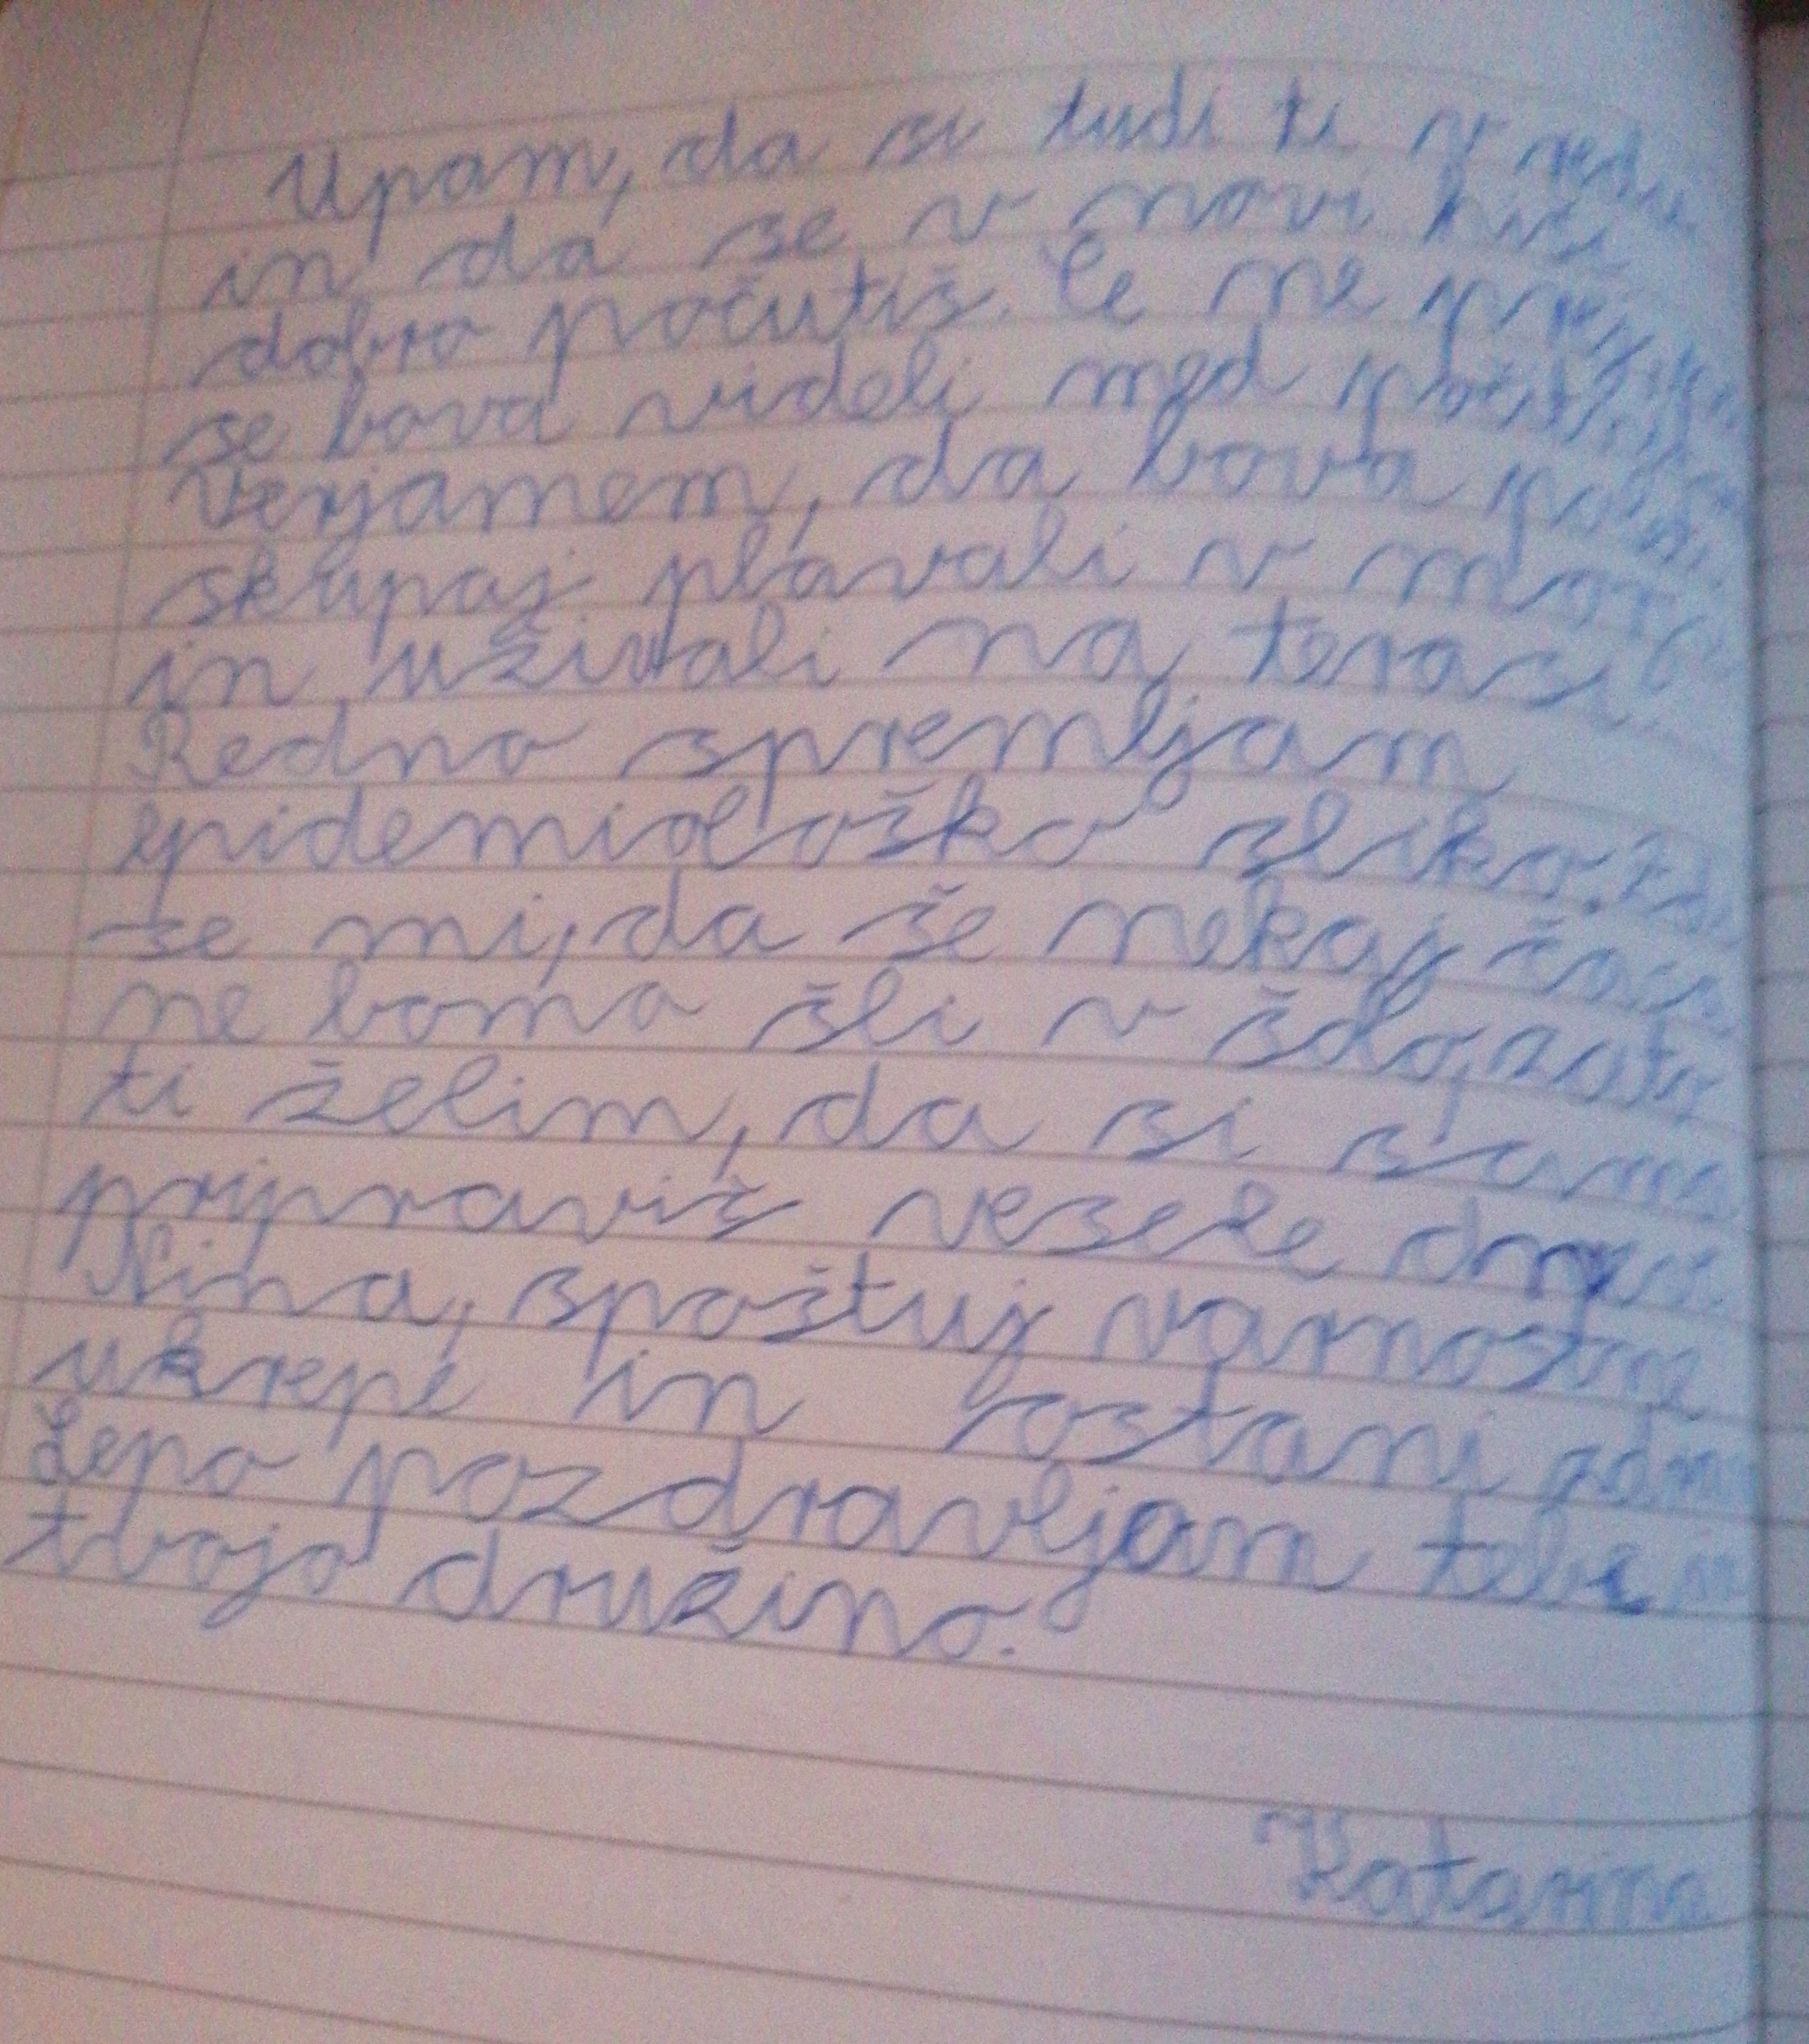 Upam, da si tudi ti v redu
in da se v novi hiši
dobro počutiš. Če ne prej,
se bova videli med počitnicami.
Verjamem, da bova
skupaj plavali v morju
in uživali na terasi.
Redno spremljam
epidemiološko sliko. Zdi
se mi, da še nekaj časa
ne bomo šli v šolo, zato
ti želim, da si sama
pripraviš vesele
Nina, spoštuj varnostne
ukrepe in ostani
Lepo pozdravljam tebe in
tvojo družino.
Katarina